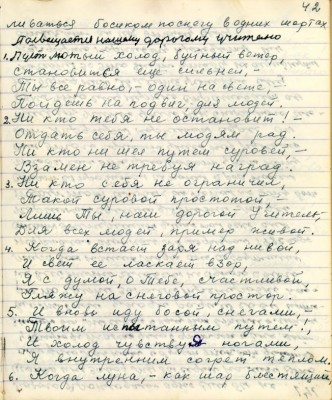 42
ливаться босиком по снегу в одних шортах
Посвещается нашему дорогому учителю
1. Пуст мотый холод, буйный ветер,
становиться еще сильней, –
Ты все равно, – один на свете,
Пойдешь на подвиг, для людей.
2. Ни кто тебя не остановит! –
Отдать себя, ты людям рад.
Ни кто ни шел путем суровой, –
Взамен не требуя наград.
3. Ни кто себя не ограничил,
Такой суровой простотой,
Лишь Ты, наш дорогой Учитель,
Для всех людей, пример живой.
4. Когда встает заря над нивой,
И свет ее ласкает взор,
Я с думой, о Тебе, счастливой,
Гляжу на снеговой простор.
5. И вновь иду босой снегами,
Твоим испытанным путем!,
И холод чувствуя ногами,
Я внутренним согрет теплом.
6. Когда луна, – как шар блестящий